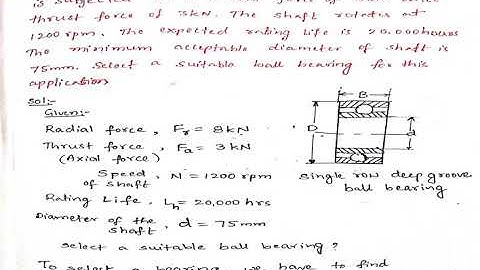 is subjected
thrust force of 3kN. The shaft rotates at
1200 rpm. The expected rating life is 20,000 hours
The minimum acceptable diameter of shaft is
75mm. Select a suitable ball bearing for this
application
Sol:-
Given:-
Radial force , Fr = 8 kN
Thrust force , Fa = 3 kN
(Axial force)
Speed of shaft , N = 1200 rpm
Rating Life , Lh = 20,000 hrs
Diameter of the shaft , d = 75mm
B
D
d
single row deep groove
ball bearing
select a suitable ball bearing ?
To select a bearing, we have to find